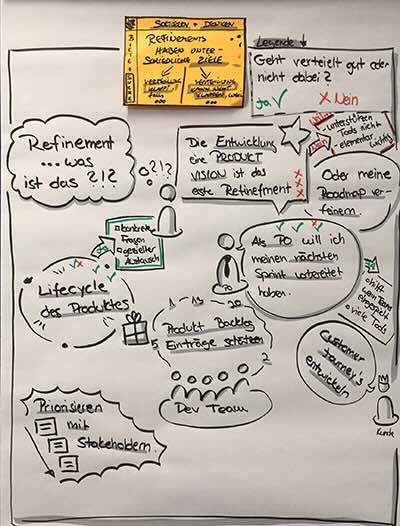 SORTIEREN + DENKEN
REFINEMENTS
HABEN UNTER-
SCHIEDLICHE ZIELE
VERTEILUNG
KLAPPT,
falls
VERTEILUNG
KANN NICHT
KLAPPEN, weil
Legende:
Geht verteilt gut oder
nicht dabei?
Ja ✓
✗ Nein
Refinement
... was
ist das ?!?
?!?
Die Entwicklung
eine PRODUKT
VISION ist das
erste Refinefment
Nein
unterstützen
Tools nicht
elementar
wichtig
Oder meine
Roadmap ver-
feinern.
Ja
konkrete
Fragen
gezielter
Austausch
Lifecycle
des Produktes
Als PO will ich
meinen nächsten
Sprint vorbereitet
haben.
PO
Ja
viele Tools
1 13 20
Product Backlog
Einträge schätzen
5
2
Dev Team
Customer
Journey's
entwickeln
Kunde
Priorisieren
mit
Stakeholdern